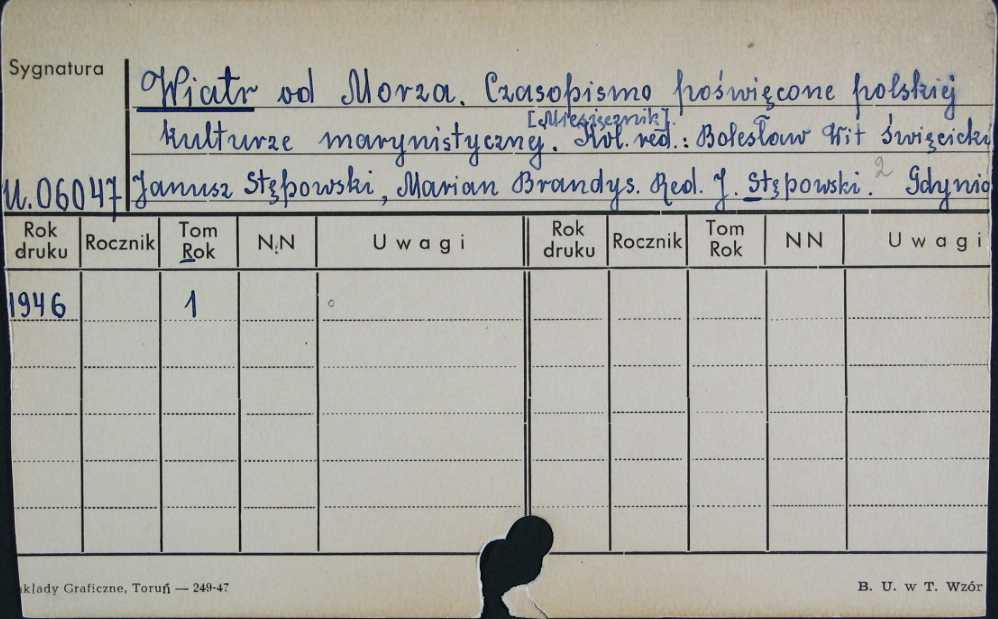 Sygnatura
Wiatr od Morza. Czasopismo poświęcone polskiej
[Miesięcznik].
kulturze marynistycznej. Kol. red.: Bolesław Wit Święcicki
U.06047 Janusz Stępowski, Marian Brandys. Red. J. Stępowski. 2 Gdynia
Rok druku Rocznik Tom Rok N.N Uwagi Rok druku Rocznik Tom Rok NN Uwagi
1946 1
kłady Graficzne, Toruń — 249-47 B. U. w T. Wzór